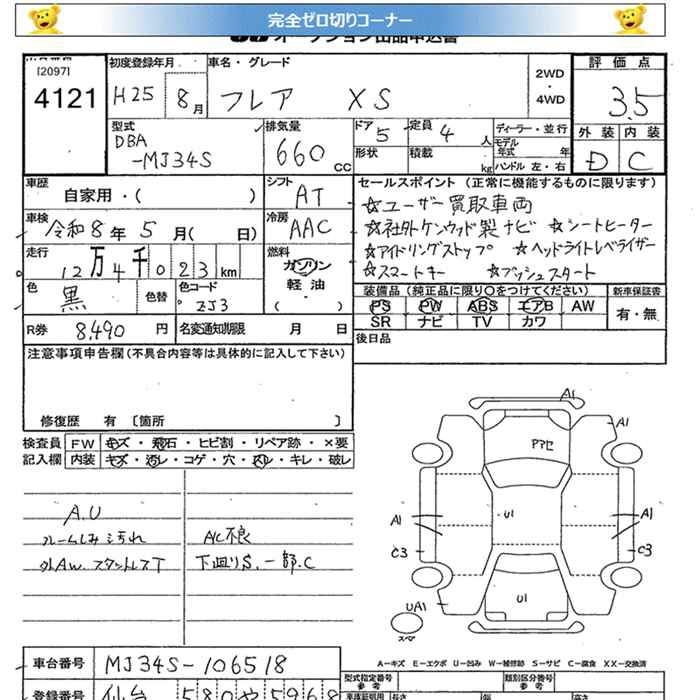 完全ゼロ切りコーナー
オークション出品申込書
[2097]
4121
初度登録年月
H25 8月
車名・グレード
フレア XS
2WD・4WD
評価点
3.5
外装 内装
D C
型式
DBA
-MJ34S
排気量
660 CC
ドア 5
定員 4 人
形状
積載 kg
ディーラー・並行
モデル年式 年
ハンドル 左・右
車歴
自家用・( )
シフト
AT
セールスポイント (正常に機能するものに限ります)
☆ユーザー買取車両
☆社外ケンウッド製ナビ ☆シートヒーター
☆アイドリングストップ ☆ヘッドライトレベライザー
☆スマートキー ☆プッシュスタート
車検
令和8年5月( 日)
冷房
AAC
走行
12万4千023km
燃料
ガソリン
軽油
( )
色
黒
色替
色コード
ZJ3
装備品 (純正品に限り○をつけてください)
PS PW ABS エアB AW
SR ナビ TV カワ
新車保証書
有・無
R券 8,490円
名変通知期限 月 日
後日品
注意事項申告欄(不具合内容等は具体的に記入して下さい)
修復歴 有 〔箇所 〕
検査員記入欄
FW キズ・飛石・ヒビ割・リペア跡・×要
内装 キズ・汚レ・コゲ・穴・スレ・キレ・破レ
A.U
ルームしみ汚れ
外AW.スタットレスT
AC不良
下廻りS.一部.C
A1
A1
Pアセ
A1
U1
A1
C3
C3
UA1
U1
スペア
A-キズ E-エクボ U-凹み W-補修跡 S-サビ C-腐食 XX-交換済
車台番号
MJ34S-106518
型式指定番号
参考
類別区分番号
参考
登録番号
仙台 580 や 5968
車検証明用
長さ
幅
高さ